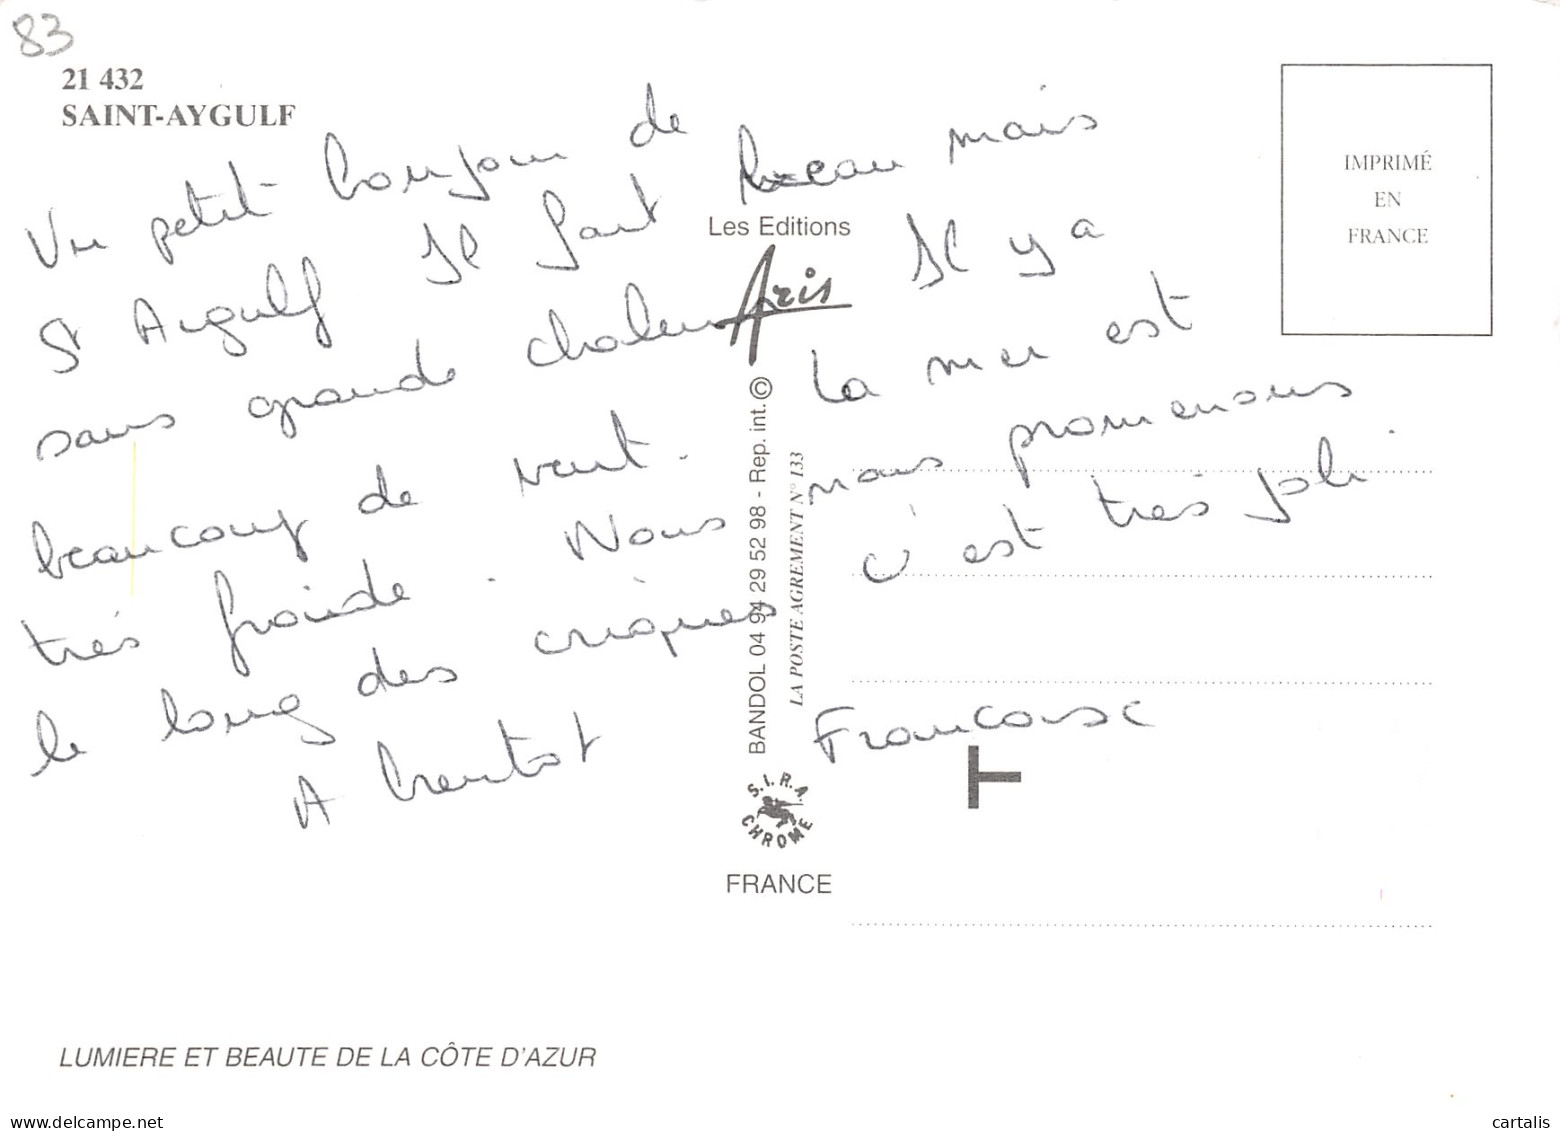 83
21 432
SAINT-AYGULF
Un petit bonjour de
St Aygulf Il fait beau mais
sans grande chaleur Il y a
beaucoup de vent. La mer est
très froide. Nous nous promenons
le long des criques c'est très joli.
A bientôt Françoise
Les Editions
Aris
BANDOL 04 94 29 52 98 - Rep. int. ©
LA POSTE AGREMENT N° 133
S.I.R.A.
CHROME
FRANCE
IMPRIMÉ
EN
FRANCE
LUMIERE ET BEAUTE DE LA CÔTE D'AZUR
www.delcampe.net
cartalis